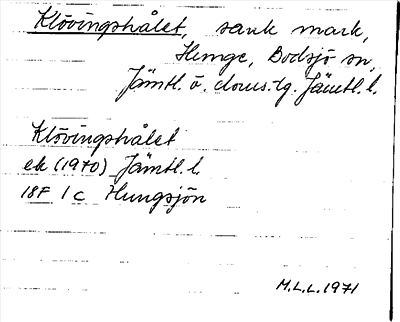 Klövingshålet, sank mark,
Hunge, Bodsjö sn,
Jämtl. ö. doms.tg. Jämtl. l.
Klövingshålet
ek (1970) Jämtl. l.
18F 1c Hungsjön
M.L.L. 1971